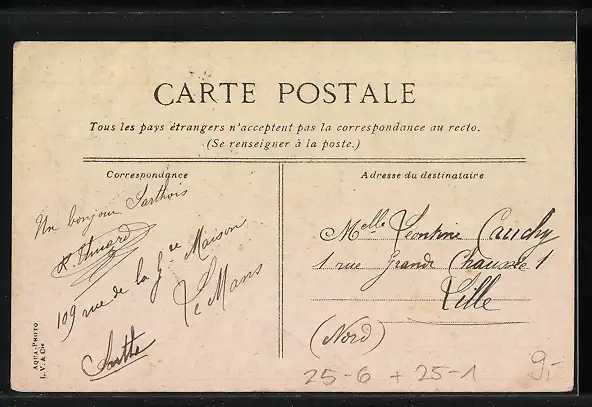 CARTE POSTALE
Tous les pays étrangers n'acceptent pas la correspondance au recto.
(Se renseigner à la poste.)
Correspondance
Un bonjour Sarthois
109 rue de la Gde Maison
Le Mans
Sarthe
Adresse du destinataire
Melle Léontine Cauchy
1 rue Grande Chaussée 1
Lille
(Nord)
AQUA-PHOTO
L. V. & Cie
25-6 + 25-1
9,-